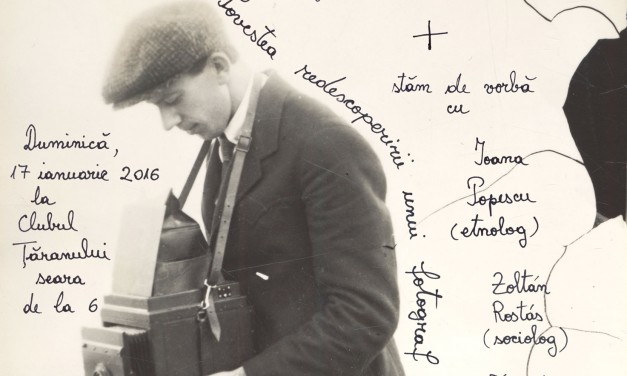 Povestea redescoperirii unui fotograf
Duminică,
17 ianuarie 2016
la
Clubul
Țăranului
seara
de la 6
+
stăm de vorbă
cu
Ioana
Popescu
(etnolog)
Zoltán
Rostás
(sociolog)